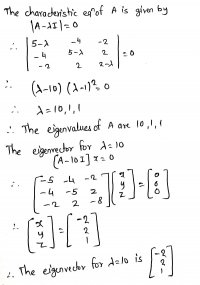 The characteristic eqn of A is given by
|A-λI|=0
∴ | 5-λ -4 -2 |
| -4 5-λ 2 | =0
| -2 2 2-λ |
∴ (λ-10) (λ-1)²=0
∴ λ=10,1,1
∴ The eigenvalues of A are 10,1,1
The eigenvector for λ=10
[A-10I] x = 0
∴ [ -5 -4 -2 ] [ x ] = [ 0 ]
[ -4 -5 2 ] [ y ] = [ 0 ]
[ -2 2 -8 ] [ z ] = [ 0 ]
∴ [ x ] = [ -2 ]
[ y ] = [ 2 ]
[ z ] = [ 1 ]
∴ The eigenvector for λ=10 is [ -2 ]
[ 2 ]
[ 1 ]